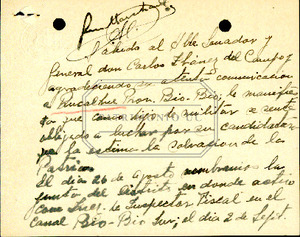 Saludo al Hble Senador y
General don Carlos Ibáñez del Campo y
agradeciendo su atenta comunicación
a Rucalhue Prov. Bio-Bio, le manifiesto
que como militar a
obligado a luchar por su candidatura
que la estima la salvación de la
Patria
El dia 26 de Agosto nombramos la
junta del distrito, en donde actúo
como Inspector Fiscal en el
Canal Bio-Bio Sur, el dia 2 de Sept.